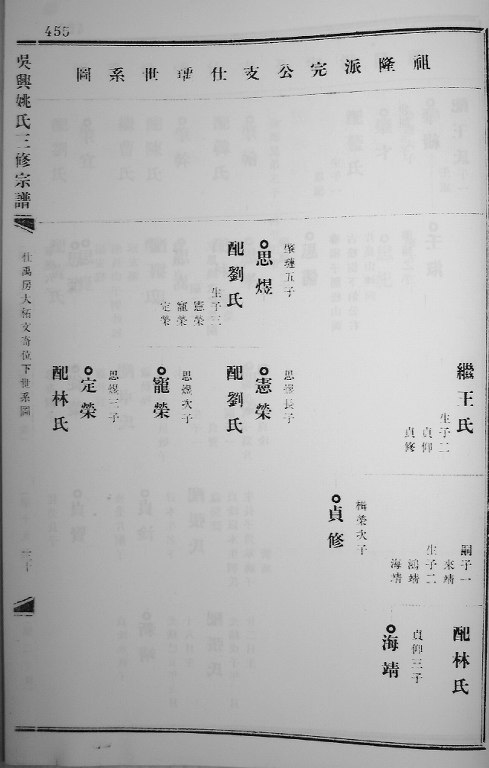 455
祖隆派完公支仕瓀世系圖
繼王氏
生子二
貞仰
貞修
嗣子一
來靖
生子二
鴻靖
海靖
配林氏
貞仰三子
海靖
榮次子
貞修
五子
思煜
配劉氏
生子三
憲榮
寵榮
定榮
思煜長子
憲榮
配劉氏
思煜次子
寵榮
思煜三子
定榮
配林氏
吳興姚氏三修宗譜
仕禹房大柘文齋位下世系圖